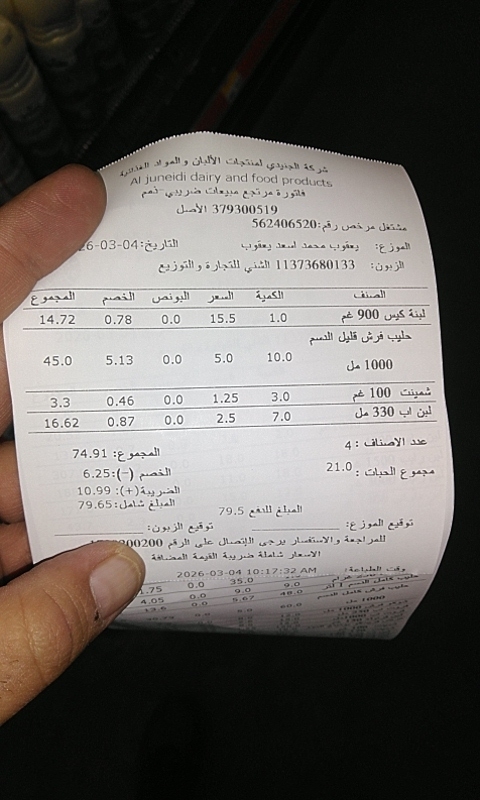 شركة الجنيدي لمنتجات الألبان و المواد الغذائية
Al juneidi dairy and food products
فاتورة مرتجع مبيعات ضريبي-نعم
379300519 الأصل
مشتغل مرخص رقم:562406520
الموزع: يعقوب محمد اسعد يعقوب التاريخ:04-03-26
الزبون: 11373680133 الشني للتجارة و التوزيع
الصنف الكمية السعر البونص الخصم المجموع
لبنة كيس 900 غم 1.0 15.5 0.0 0.78 14.72
حليب فرش قليل الدسم
1000 مل 10.0 5.0 0.0 5.13 45.0
شمينت 100 غم 3.0 1.25 0.0 0.46 3.3
لبن اب 330 مل 7.0 2.5 0.0 0.87 16.62
عدد الاصناف : 4 المجموع: 74.91
مجموع الحبات : 21.0 الخصم (-):6.25
الضريبة(+): 10.99
المبلغ للدفع 79.5 المبلغ شامل: 79.65
توقيع الموزع: توقيع الزبون:
للمراجعة والاستفسار يرجى الإتصال على الرقم
الاسعار شاملة ضريبة القيمة المضافة
وقت الطباعة: 2026-03-04 10:17:32 AM